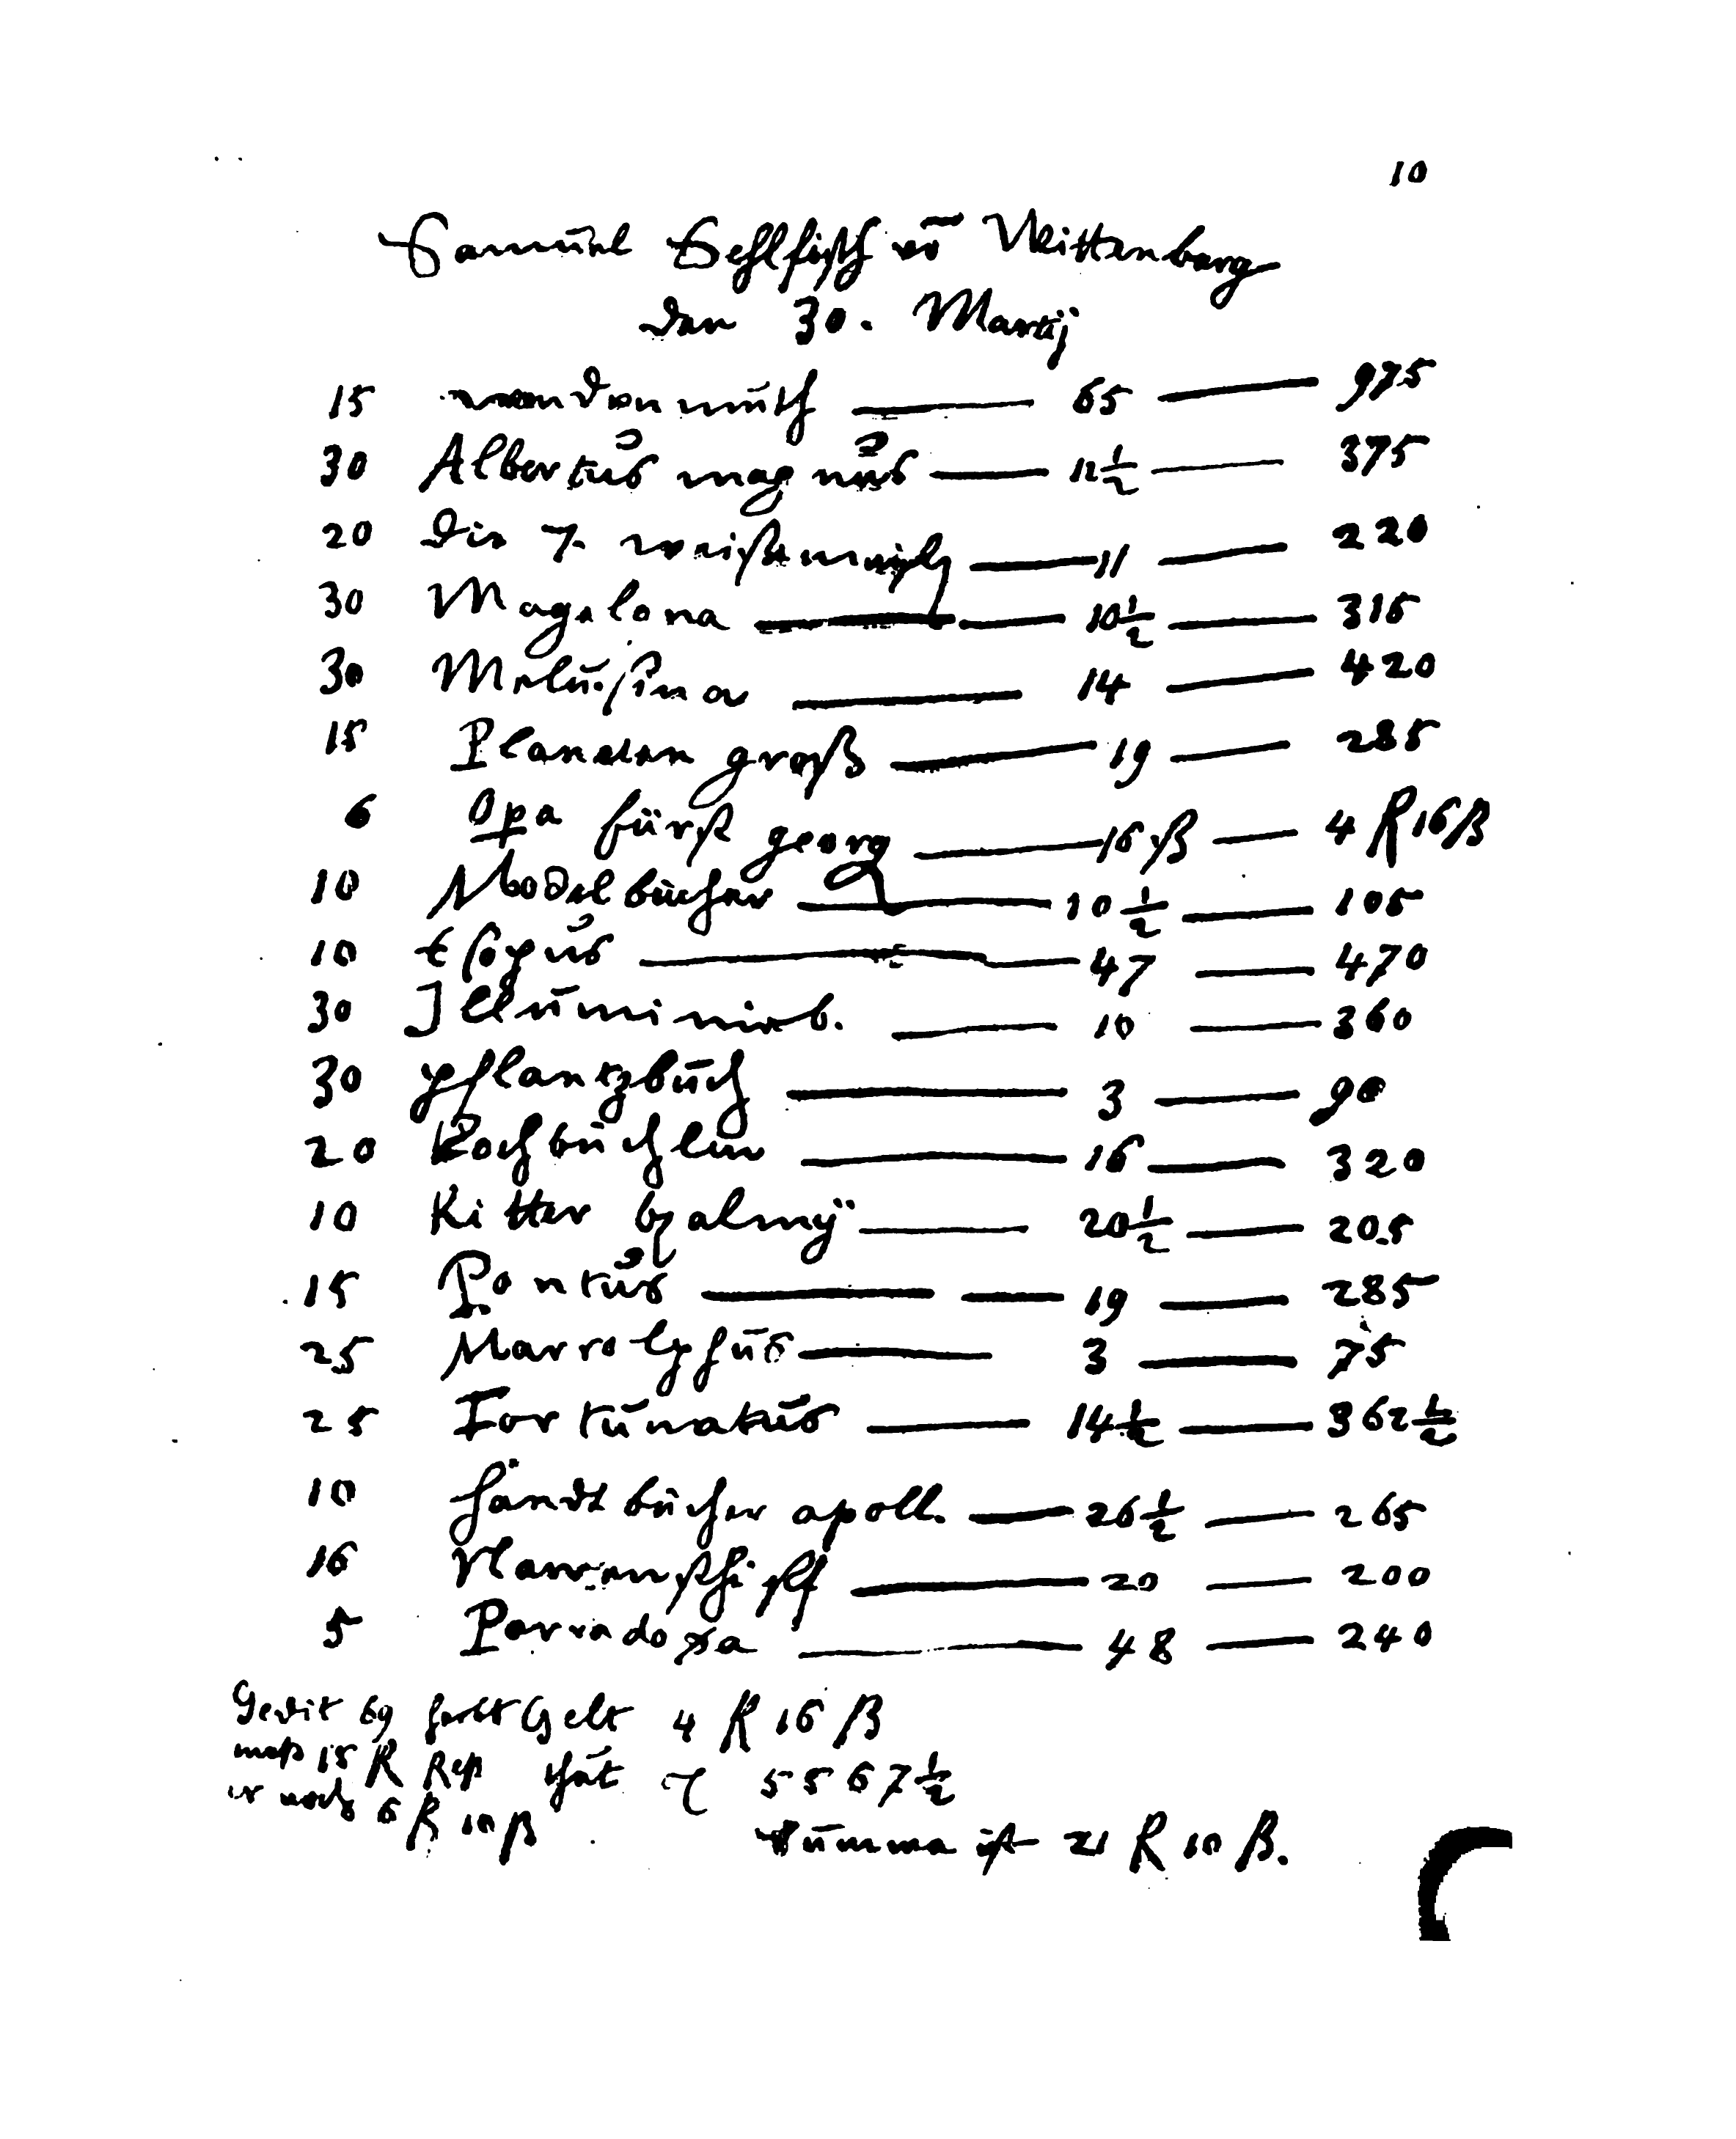 10
Samuel Sehlfisch vō Wittenberg
den 30. Martij
15 wendonmuth — 65 — 975
30 Albertus magnus — 12½ — 375
20 die 7. weißenmeister — 11 — 220
30 Magelona — 10½ — 315
30 Melusina — 14 — 420
15 Planeten groß — 19 — 285
6 Opa fürst georg — 16 ß — 4 R 16 ß
10 Model bücher — 10½ — 105
10 Esopus — 47 — 470
30 Illuminirb. — 10 — 360
30 pflantzbuch — 3 — 90
20 Kochbüchlein — 16 — 320
10 Ritter galmÿ — 20½ — 205
15 Pontus — 19 — 285
25 Marcolphus — 3 — 75
25 Fortunatus — 14½ — 362½
10 handtbücher apoll. — 26½ — 265
16 Narrenschiff — 20 — 200
5 Parradoxa — 48 — 240
Gelt 4 R 16 ß
15 R Rest thut 5567½
er noch 6 R 10 ß
Summa ist 21 R 10 ß.